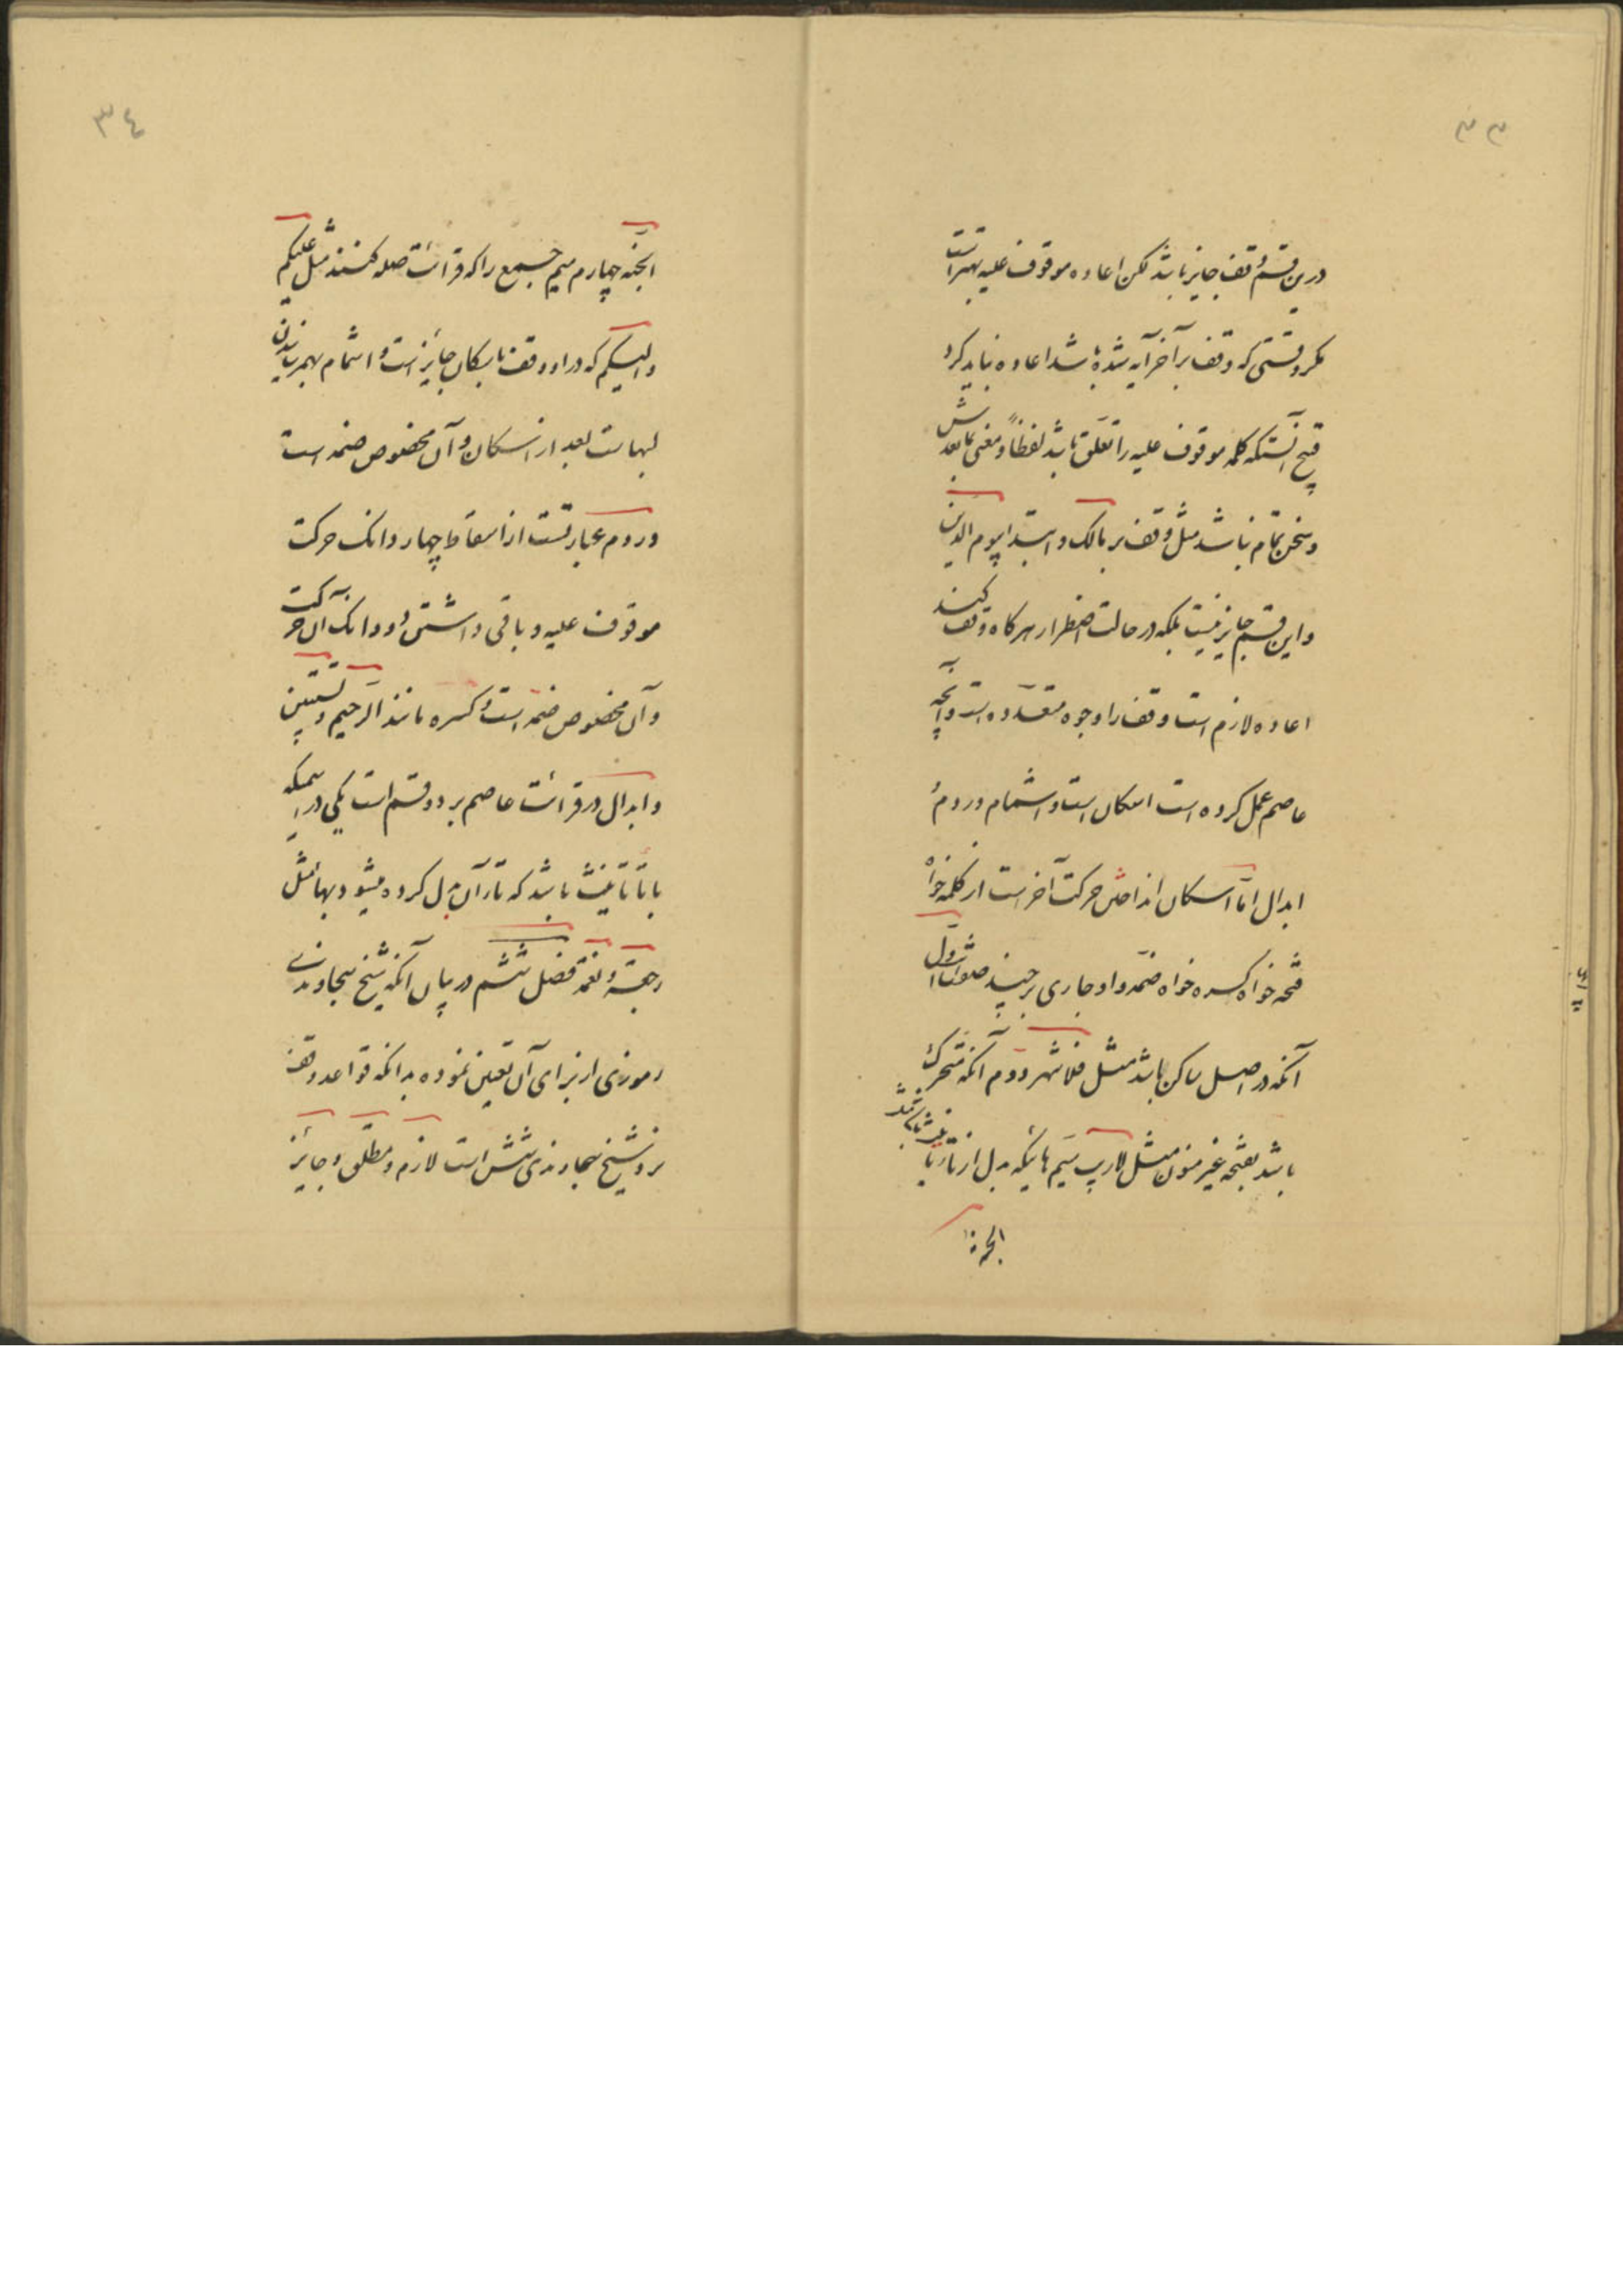 ۳۳
درین قسم وقف جایز باشد لکن اعاده موقوف علیه بهتر است
مکر وقتی که وقف بر آخر آیه شده باشد اعاده نباید کرد
قبیح آنستکه کلمه موقوف علیه را تعلق باشد لفظاً و معنی بما بعدش
و سخن تمام نباشد مثل وقف بر مالک و ابتدا بیوم الدین
و این قسم جایز نیست بلکه در حالت اضطرار هرکاه وقف کنند
اعاده لازم است و وقف را وجوه متعدده است و آنچه
عاصم عمل کرده است اسکان است و اشمام و روم و
ابدال امّا اسکان انداختن حرکت آخر است از کلمه خواه
فتحه خواه کسره خواه ضمّه و او جاری بر چند صلعت اول
آنکه در اصل ساکن باشد مثل فلا تنهر دوم آنکه متحرک
باشد بفتحه غیر منون مثل لاریب سیم هائیکه بدل از تاء تانیث باشد مثل
الجنة
۳٤
الجنه چهارم میم جمع را که قرائت صله کنند مثل علیکم
والیکم که در او وقف باسکان جایز است و اشمام بهم رسانیدن
لبهاست بعد از اسکان و آن مخصوص ضمه است
و روم عبارتست از اسقاط چهار دانک حرکت
موقوف علیه و باقی داشتن دو دانک آن حرکت
و آن مخصوص ضمه است و کسره مانند الرحیم و نستعین
و ابدال در قرائت عاصم بر دو قسم است یکی در اسمیکه
با تاء تانیث باشد که تاء آن بدل کرده میشود بهاء مثل
رحمة و نعمة فصل ششم در بیان آنکه شیخ سجاوندی
رموزی از برای آن تعیین نموده بدانکه قواعد وقف
نزد شیخ سجاوندی شش است لازم و مطلق و جایز